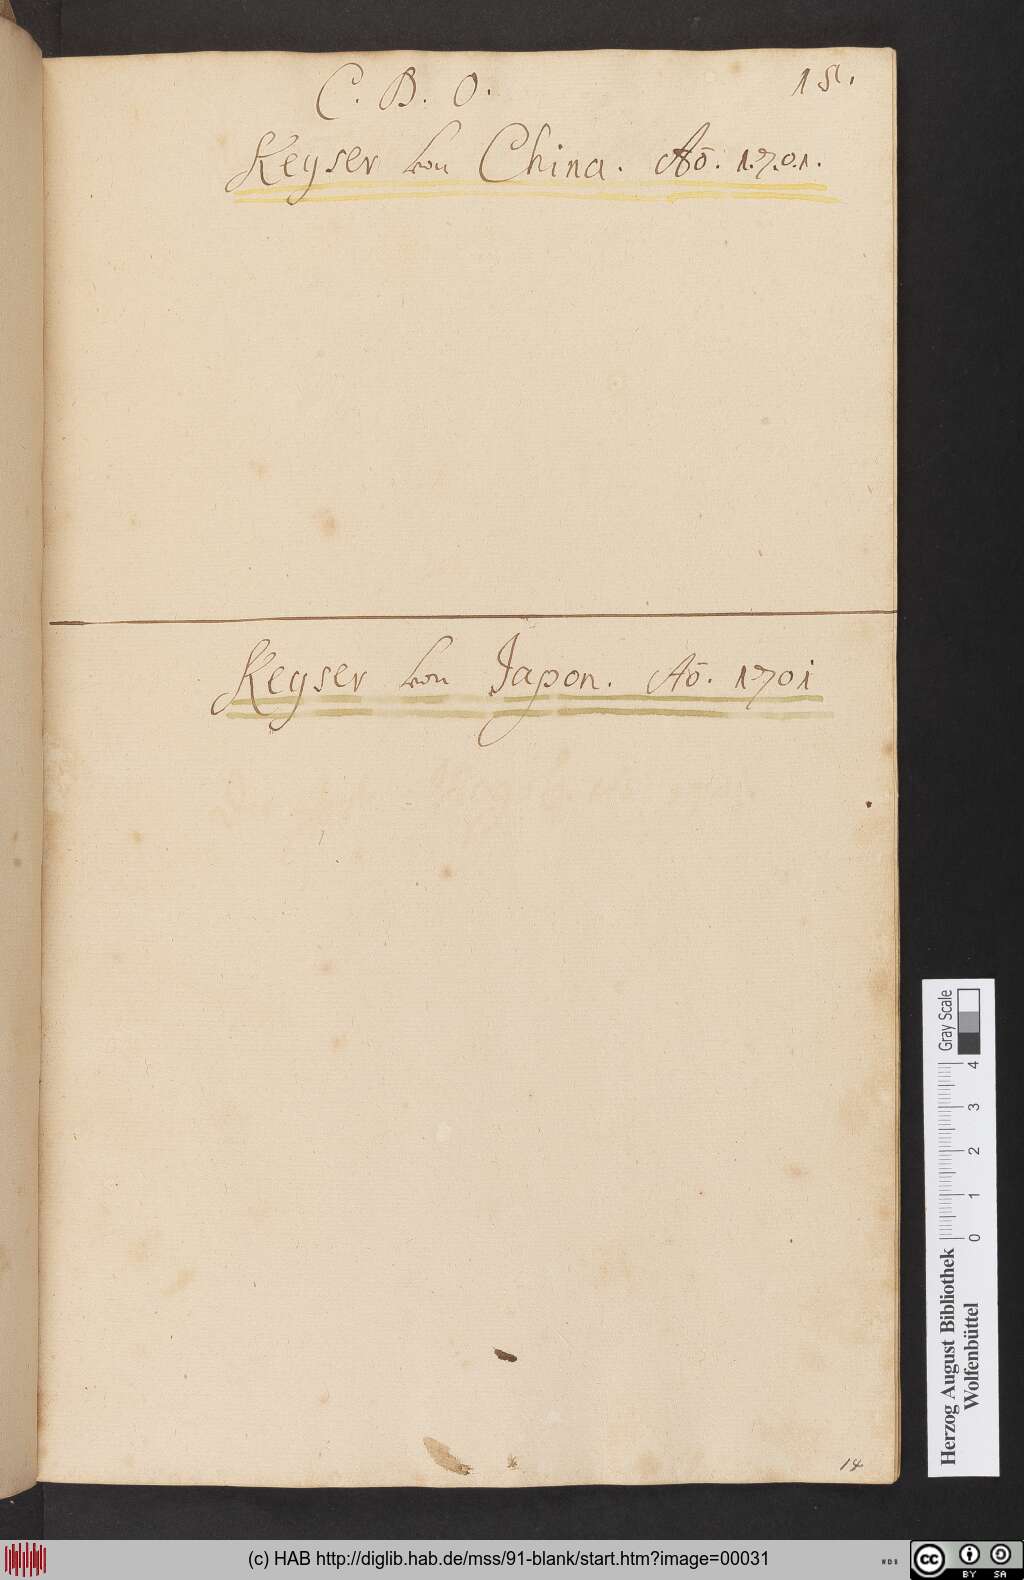 C. B. O.
15.
Keyser von China. Aō. 1.7.0.1.
Keyser von Japon. Aō. 1701
14
Gray Scale
0 1 2 3 4
Herzog August Bibliothek
Wolfenbüttel
(c) HAB http://diglib.hab.de/mss/91-blank/start.htm?image=00031
WDB
cc BY SA